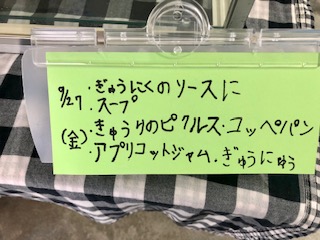 9/27 ・ぎゅうにくのソースに
・スープ
(金)・きゅうりのピクルス・コッペパン
・アプリコットジャム・ぎゅうにゅう